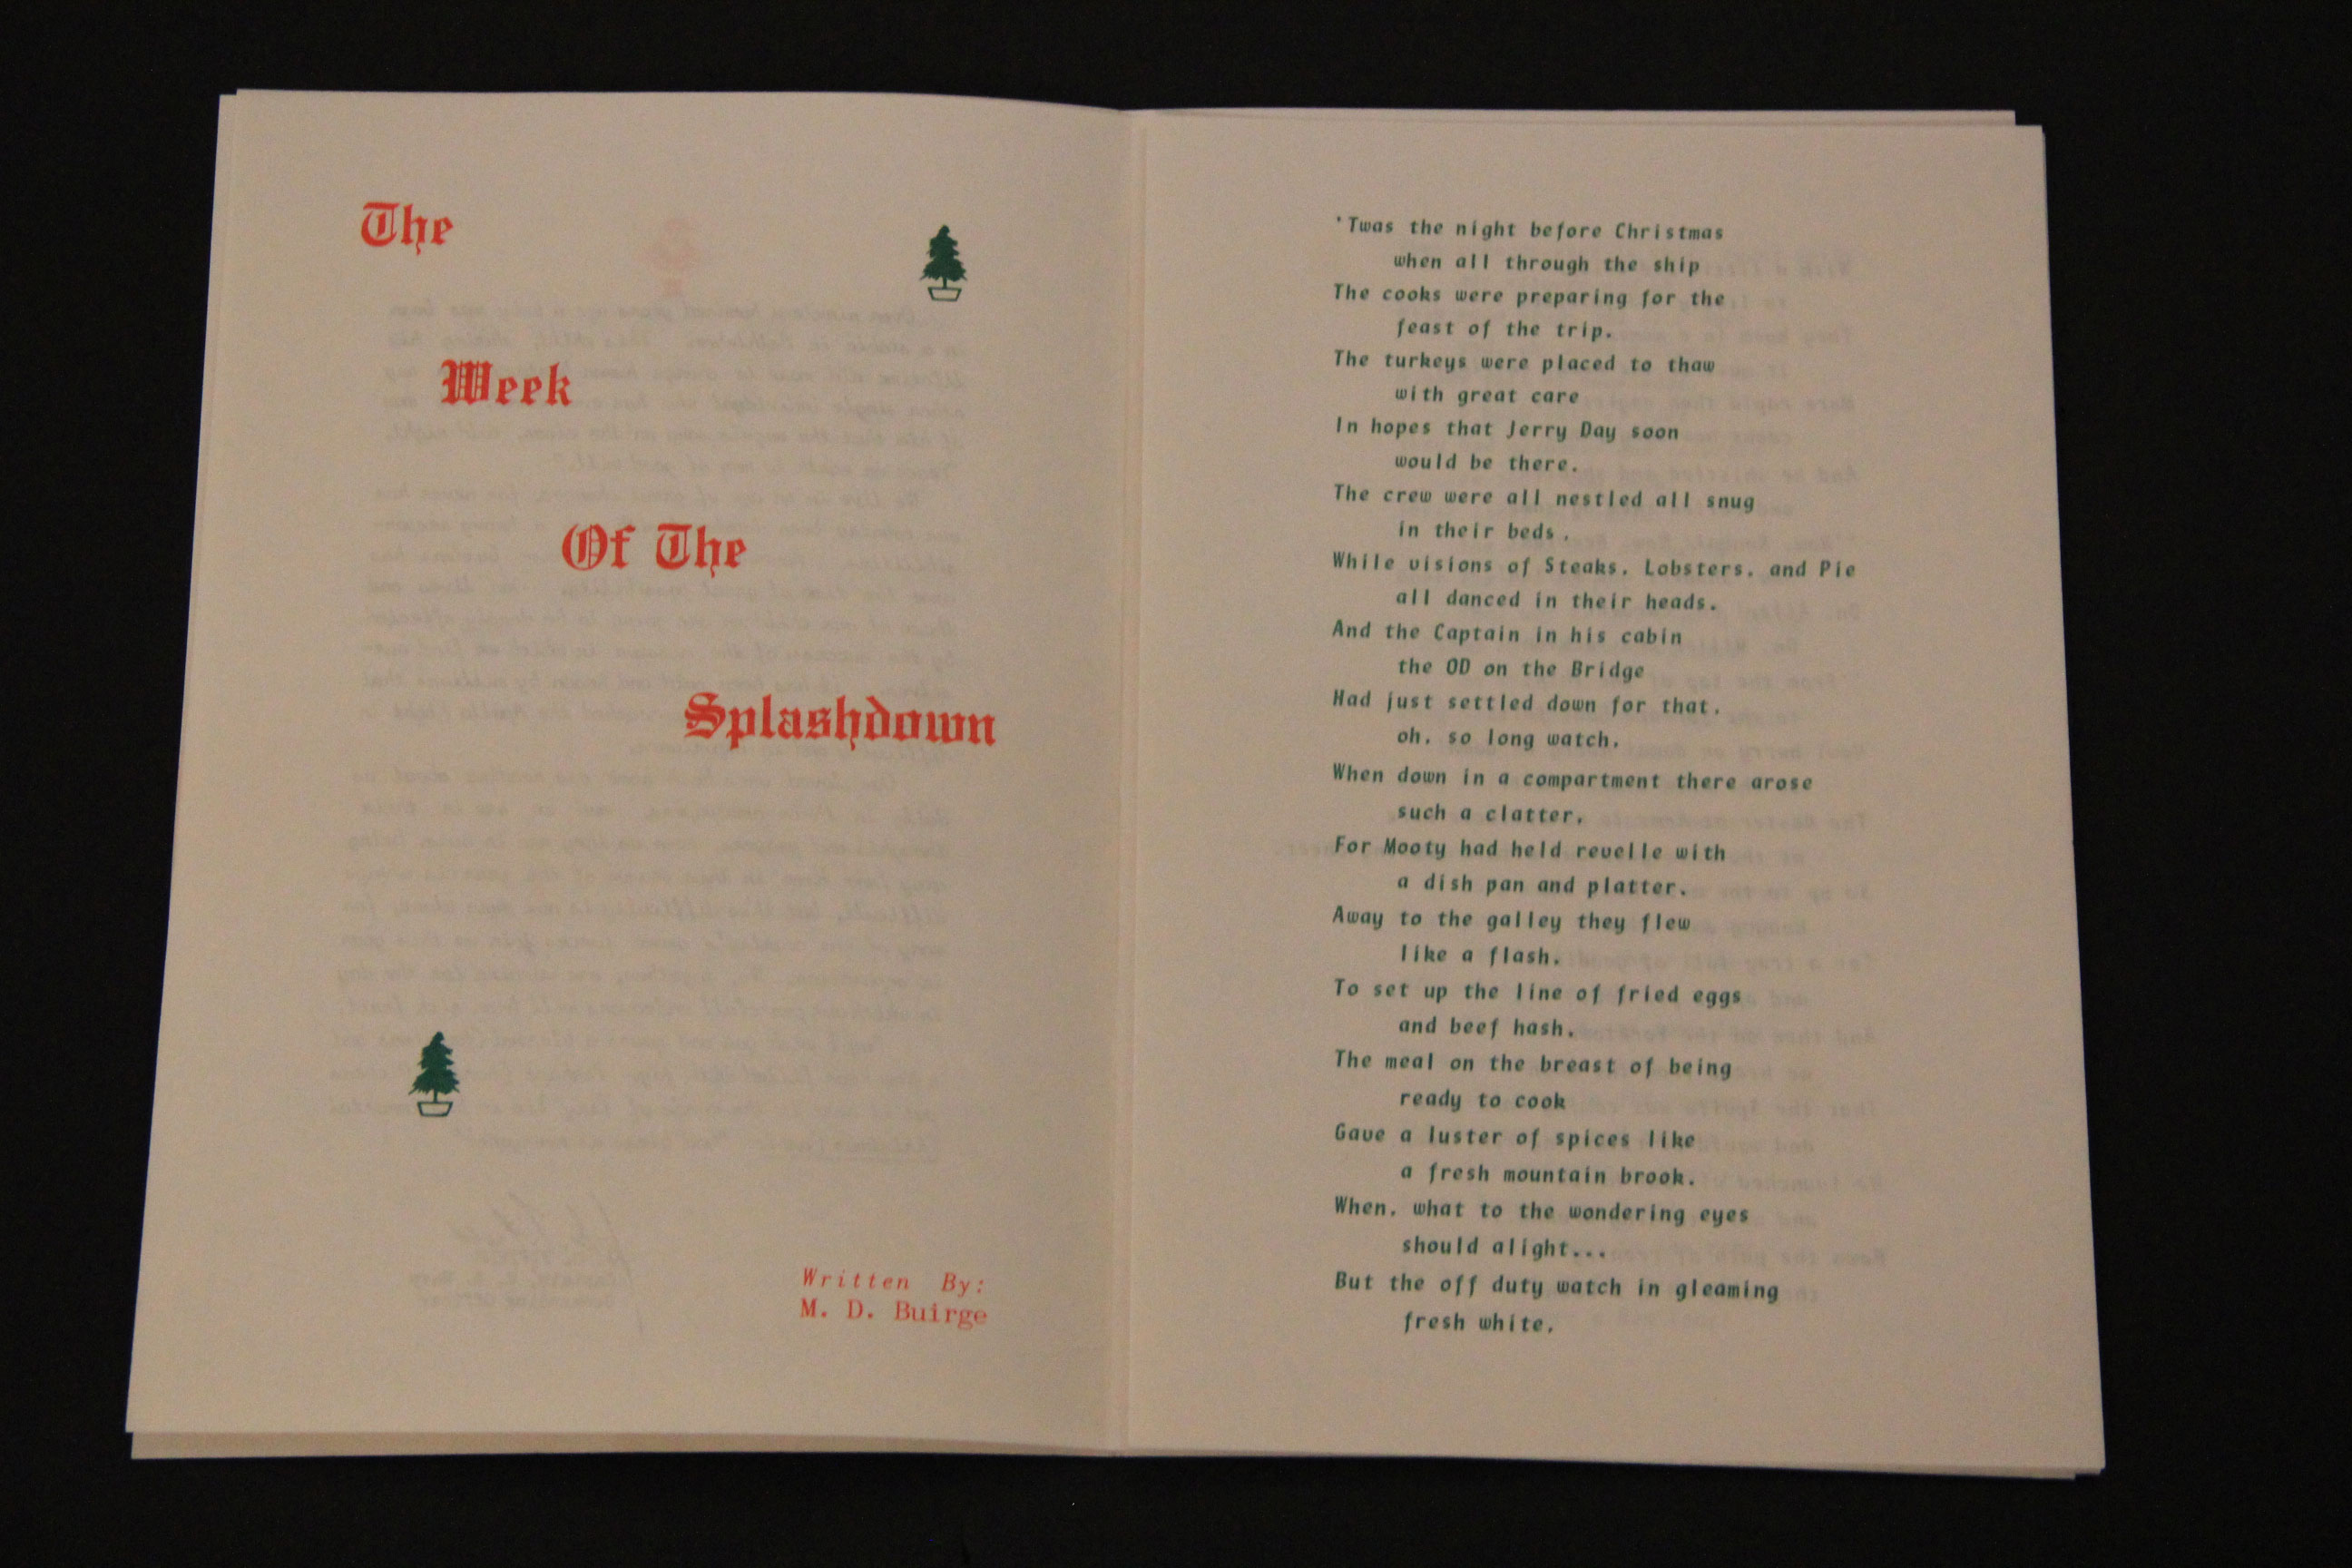 The
Week
Of The
Splashdown
Written By:
M. D. Buirge
'Twas the night before Christmas
when all through the ship
The cooks were preparing for the
feast of the trip.
The turkeys were placed to thaw
with great care
In hopes that Jerry Day soon
would be there.
The crew were all nestled all snug
in their beds,
While visions of Steaks, Lobsters, and Pie
all danced in their heads.
And the Captain in his cabin
the OD on the Bridge
Had just settled down for that,
oh, so long watch,
When down in a compartment there arose
such a clatter,
For Mooty had held revelle with
a dish pan and platter.
Away to the galley they flew
like a flash,
To set up the line of fried eggs
and beef hash,
The meal on the breast of being
ready to cook
Gave a luster of spices like
a fresh mountain brook.
When, what to the wondering eyes
should alight...
But the off duty watch in gleaming
fresh white,